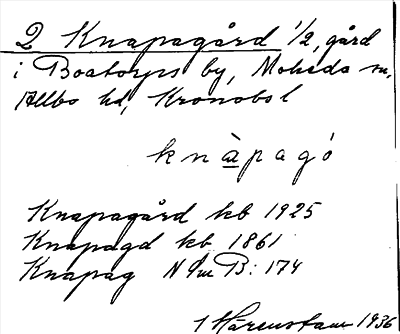 2 Knapagård 1/2, gård
i Boatorps by, Moheda sn,
Allbo hd, Kronobs l
knàpagó
Knapagård kb 1925
Knapagd kb 1861
Knapag N Sm B: 174
1 Härenstam 1936